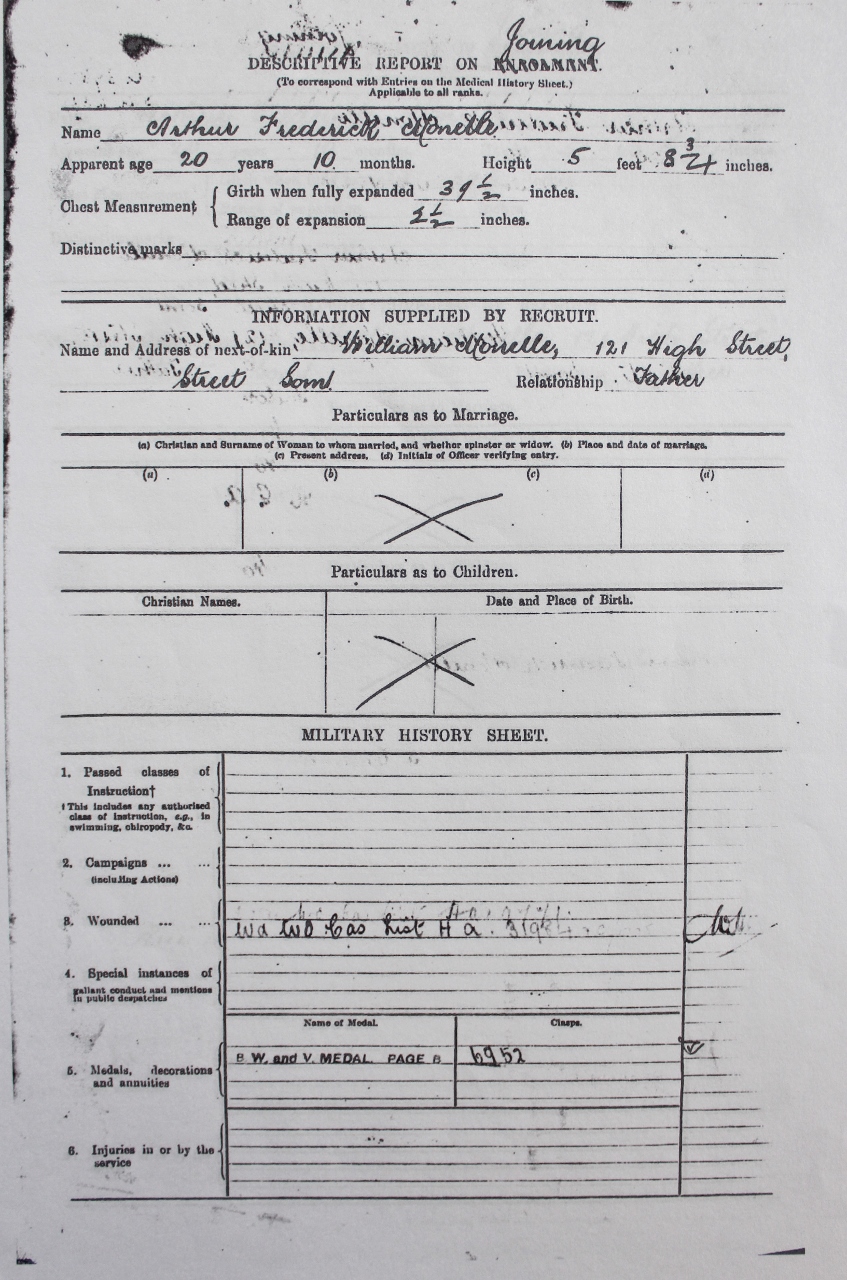 Joining
DESCRIPTIVE REPORT ON ENROLMENT.
(To correspond with Entries on the Medical History Sheet.)
Applicable to all ranks.
Name Arthur Frederick
Apparent age 20 years 10 months. Height 5 feet 8 3/4 inches.
Chest Measurement { Girth when fully expanded 39 1/2 inches.
Range of expansion 1/2 inches.
Distinctive marks
INFORMATION SUPPLIED BY RECRUIT.
Name and Address of next-of-kin William 121 High Street,
Street Som Relationship Father
Particulars as to Marriage.
(a) Christian and Surname of Woman to whom married, and whether spinster or widow. (b) Place and date of marriage.
(c) Present address. (d) Initials of Officer verifying entry.
(a) (b) (c) (d)
Particulars as to Children.
Christian Names. Date and Place of Birth.
MILITARY HISTORY SHEET.
1. Passed classes of
Instruction†
† This includes any authorised
class of instruction, e.g., in
swimming, chiropody, &c.
2. Campaigns ... ...
(including Actions)
3. Wounded ... ...
Wd WO Cas List H a.
4. Special instances of
gallant conduct and mentions
in public despatches
Name of Medal. Clasps.
5. Medals, decorations
and annuities
B W. and V. MEDAL. PAGE B 6952
6. Injuries in or by the
service